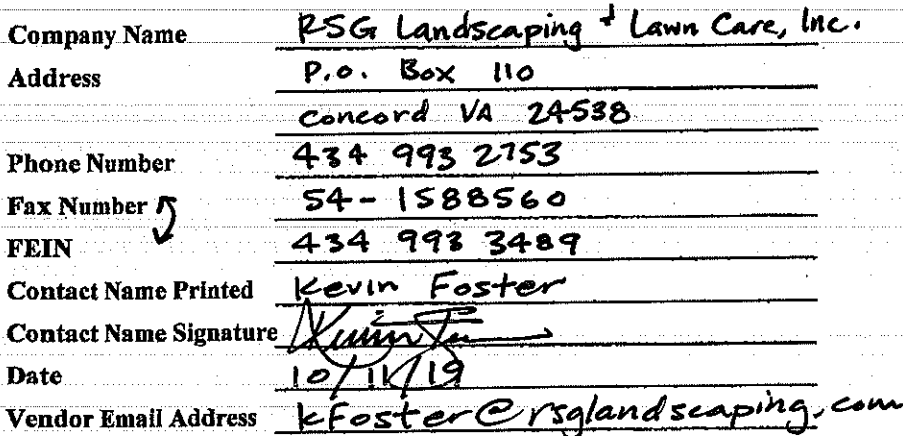 Company Name RSG Landscaping + Lawn Care, Inc.
Address P.O. Box 110
Concord VA 24538
Phone Number 434 993 2753
Fax Number 54-1588560
FEIN 434 993 3489
Contact Name Printed Kevin Foster
Contact Name Signature
Date 10/11/19
Vendor Email Address kFoster@rsglandscaping.com